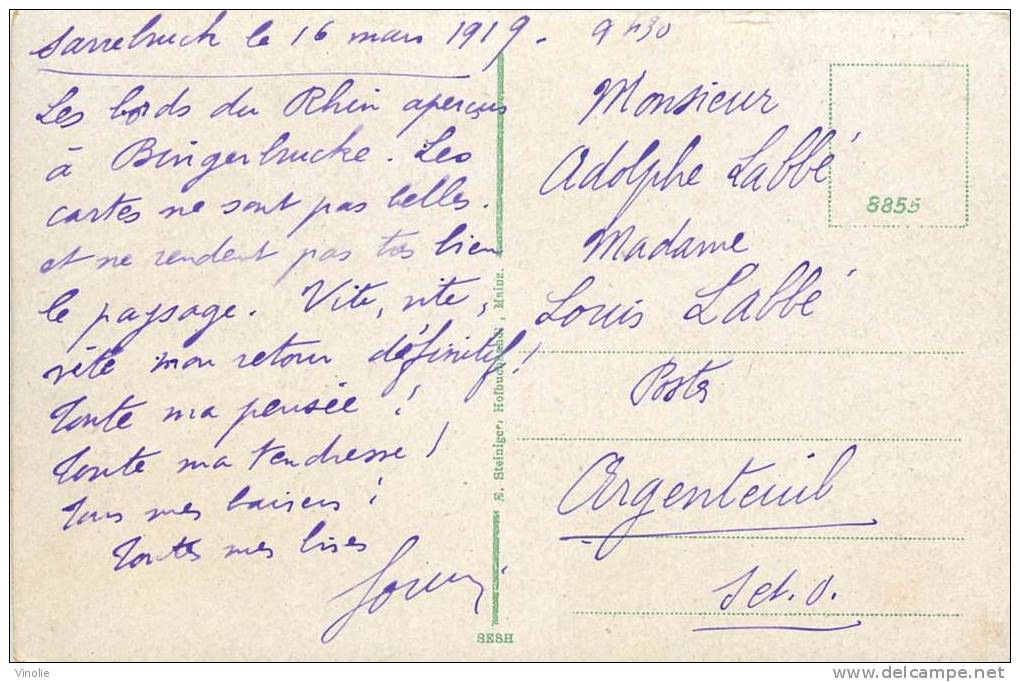 Sarrebruck le 16 mars 1919. 9h30
Les bords du Rhin aperçus
à Bingerbrucke. Les
cartes ne sont pas belles.
et ne rendent pas très bien
le paysage. Vite, vite,
vite mon retour définitif!
Toute ma pensée!
Toute ma tendresse!
Tous mes baisers!
Toutes mes bises
Louis
Æ. Steiniger, Hofbuchhandl, Mainz.
SESH
8855
Monsieur
Adolphe Labbé
Madame
Louis Labbé
Postes
Argenteuil
S et. O.
Vinolie
delcampe.net